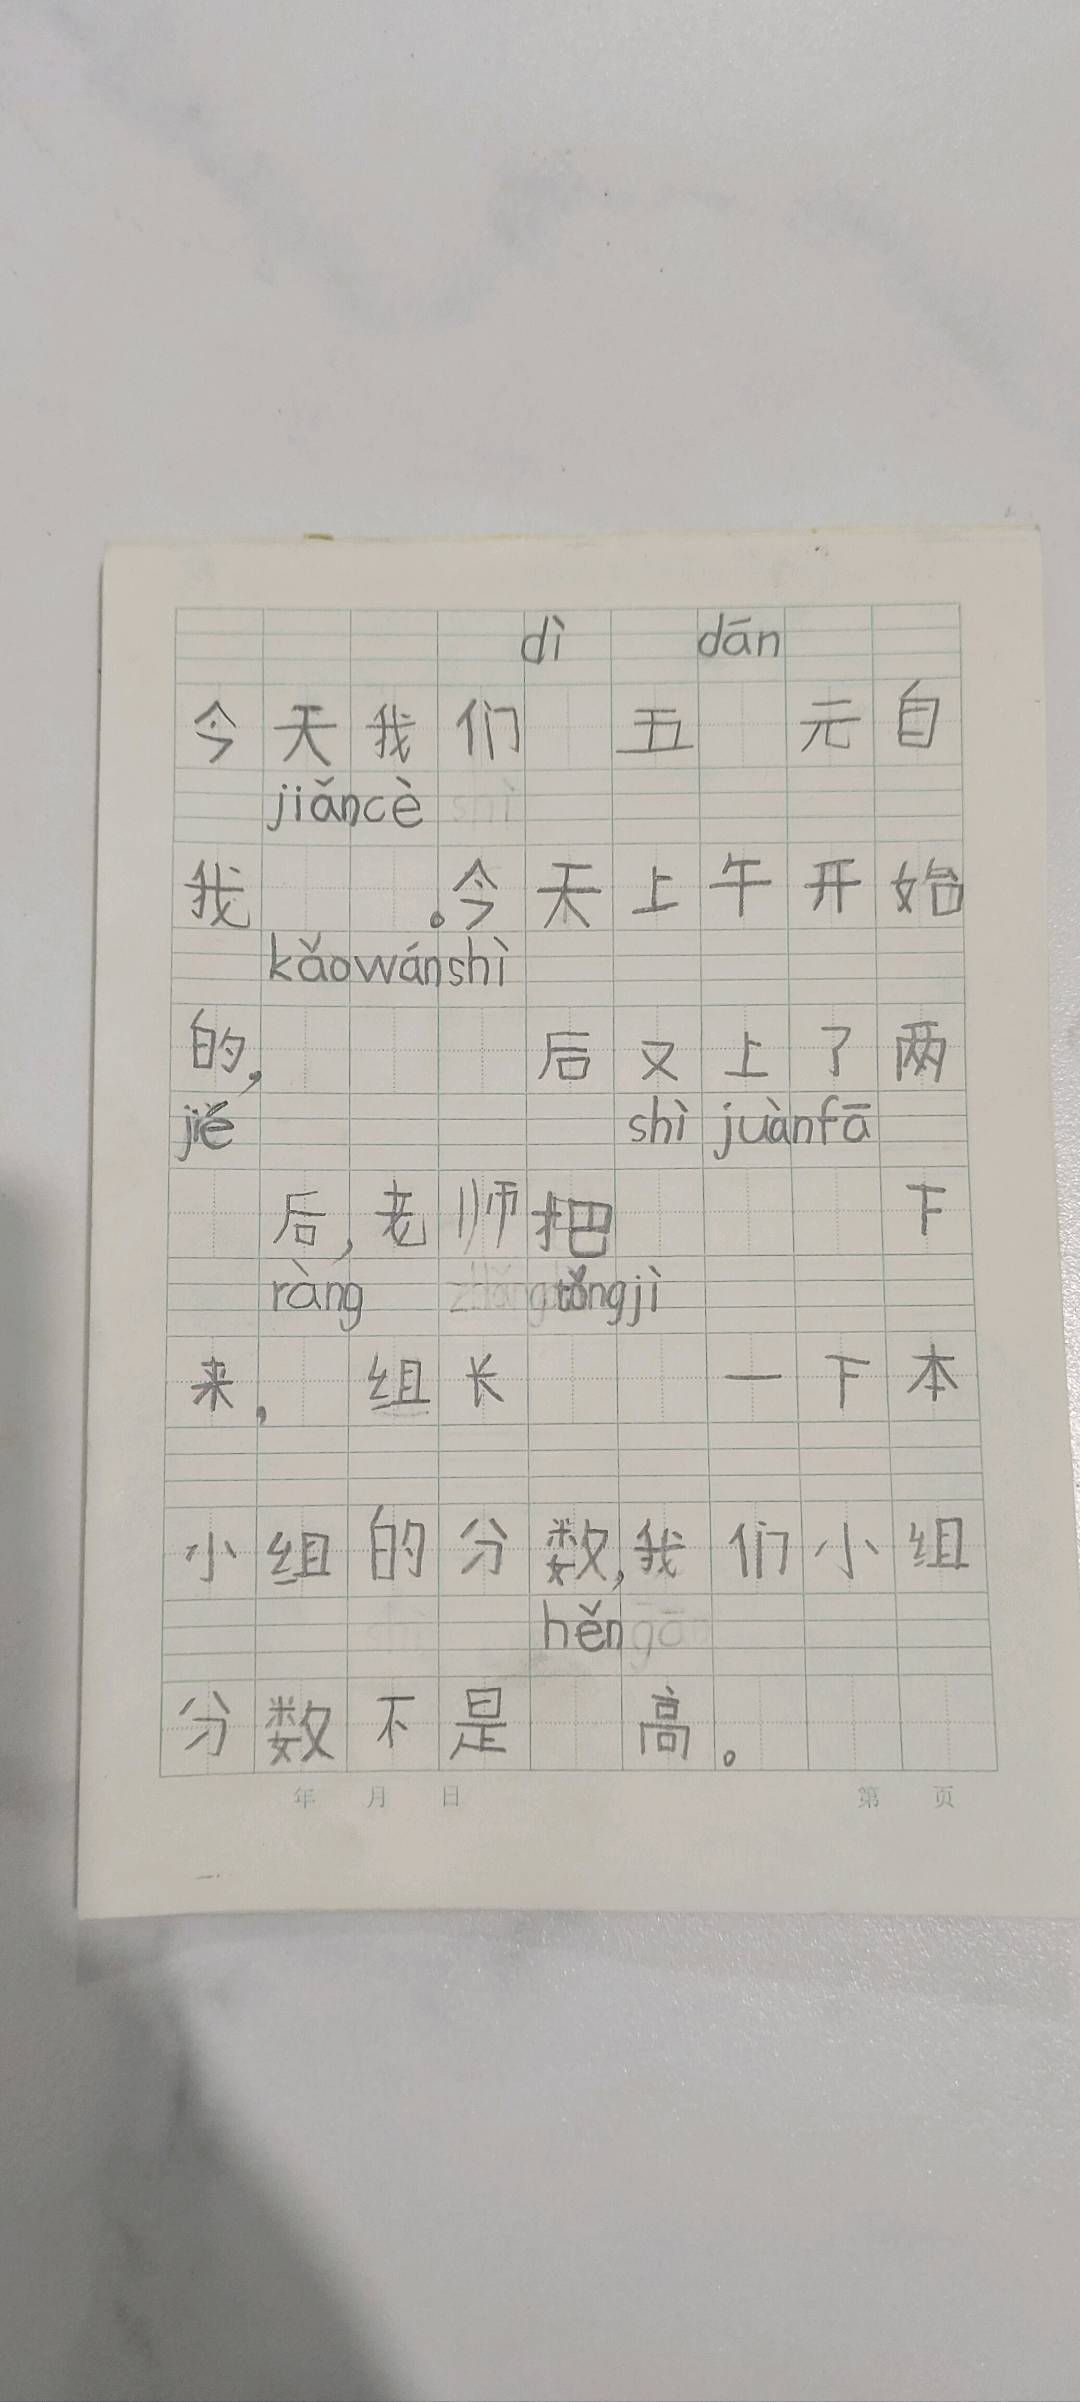 dì dān
今天我们 五 元自
jiǎncè
我 。今天上午开始
kǎowánshì
的, 后又上了两
jiě shìjuànfā
后,老师把 下
ràng tǒngjì
来, 组长 一下本
小组的分数,我们小组
hěn
分数不是 高。
年 月 日 第 页